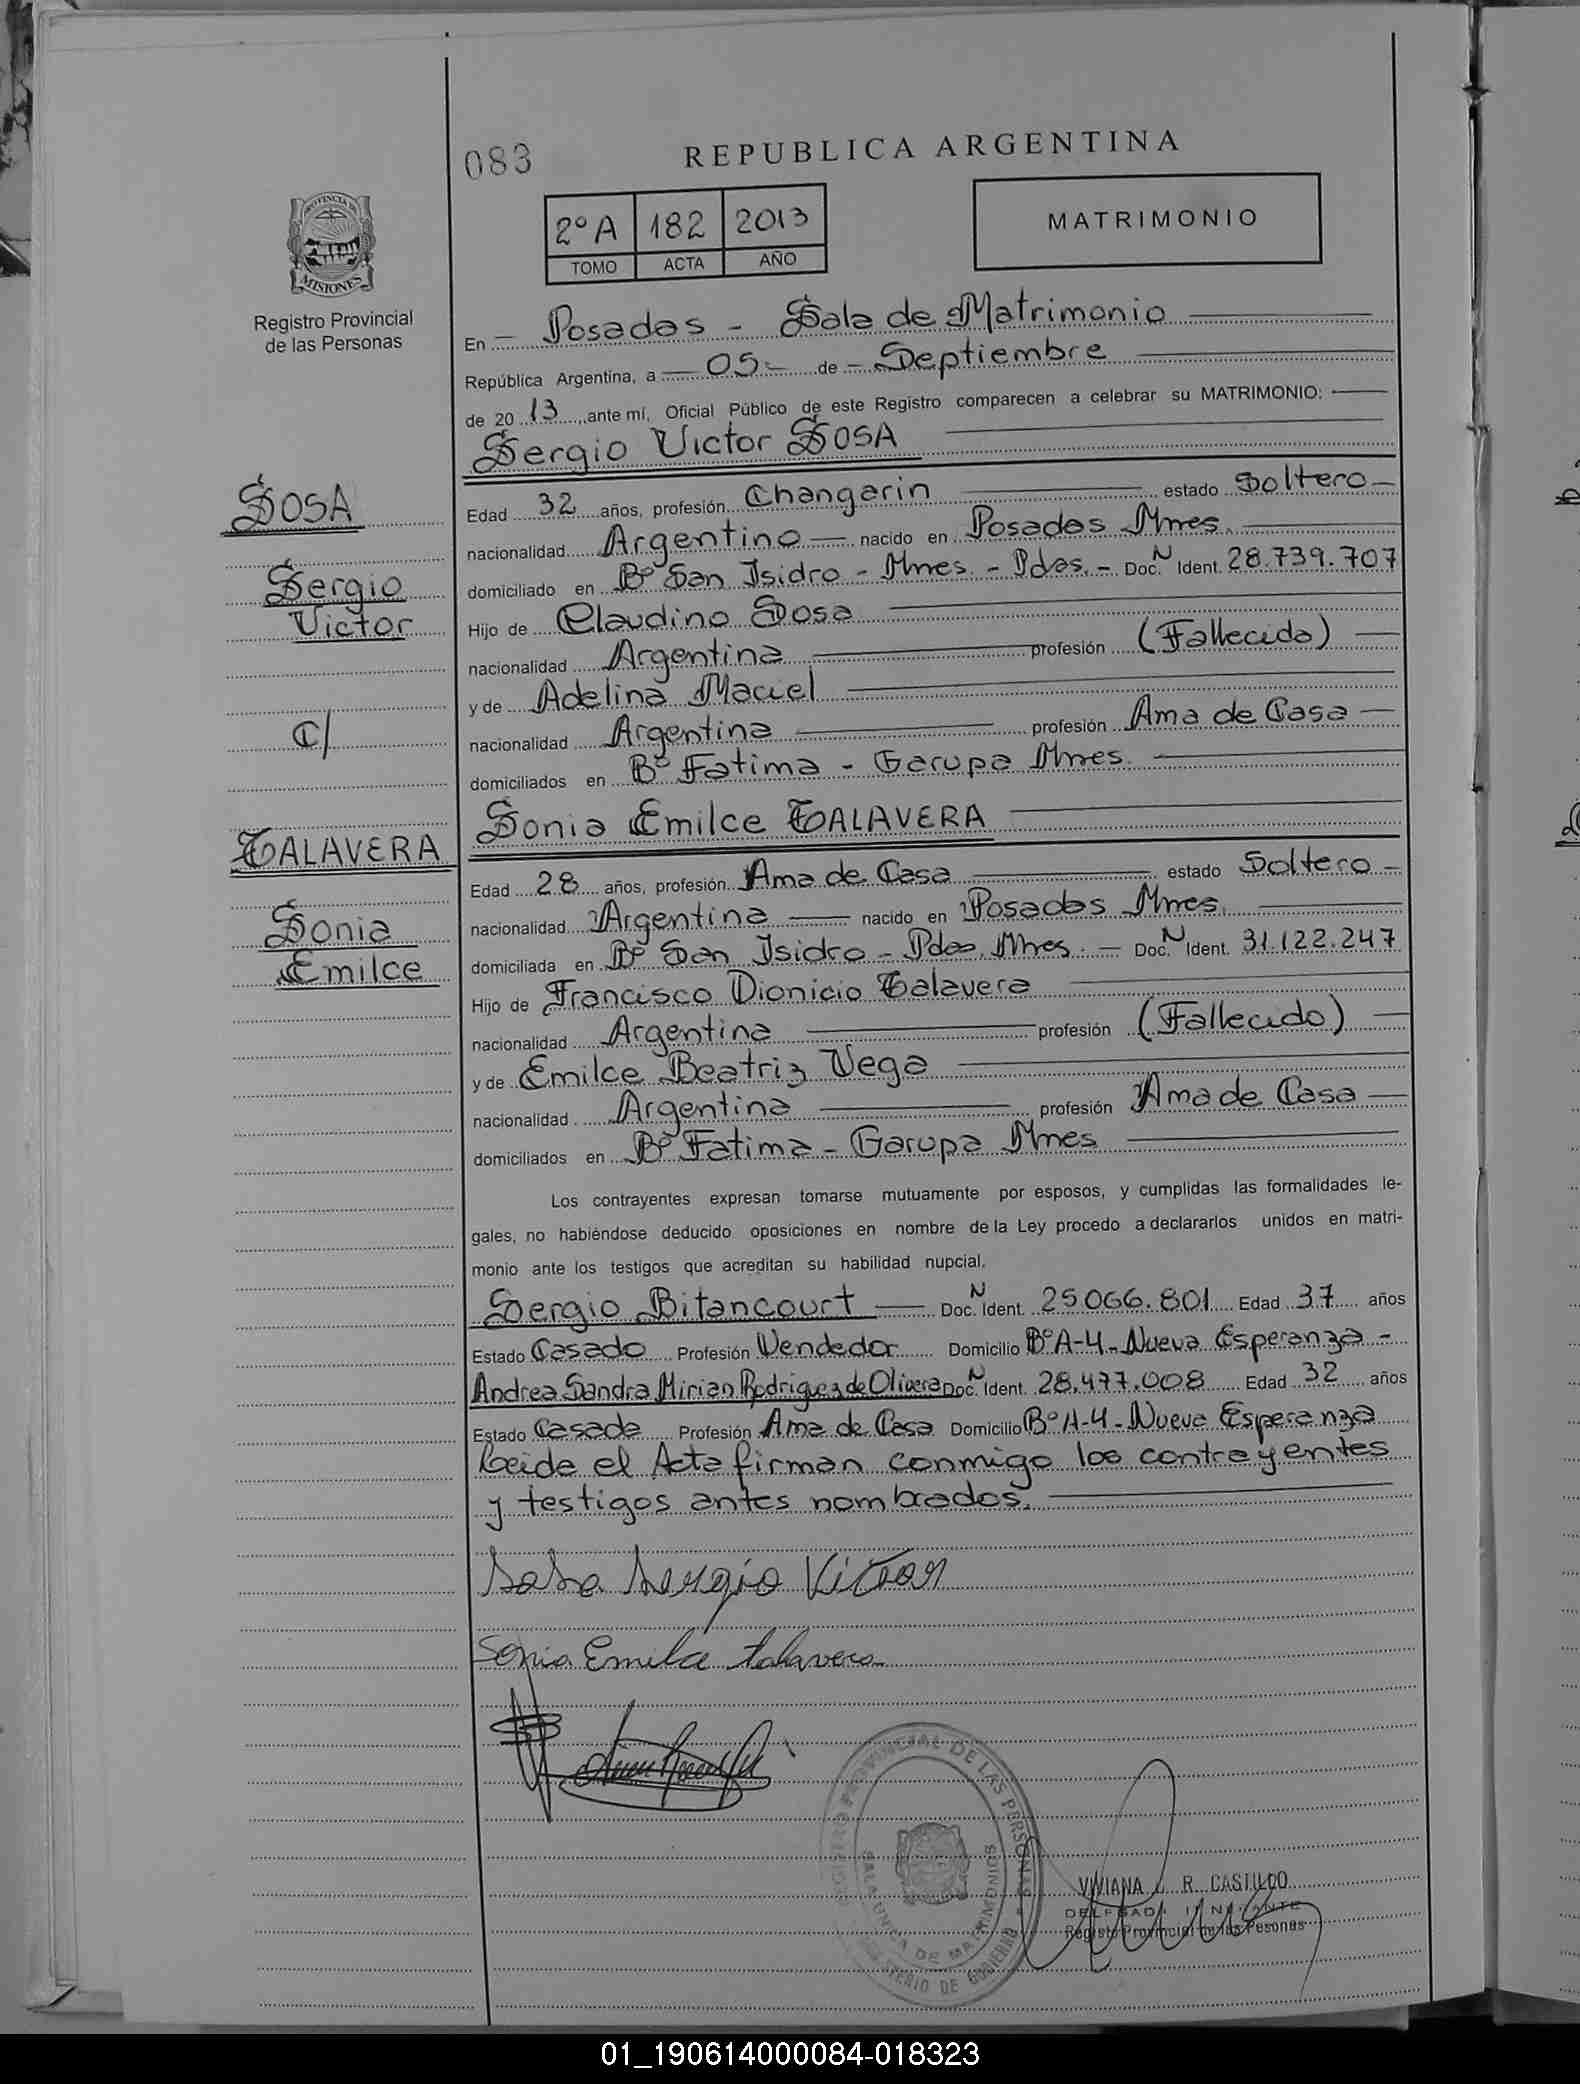 083
REPUBLICA ARGENTINA
2º A 182 2013
TOMO ACTA AÑO
MATRIMONIO
PROVINCIA DE
MISIONES
Registro Provincial
de las Personas
En - Posadas - Sala de Matrimonio
República Argentina, a - 05 - de - Septiembre
de 20 13, ante mí, Oficial Público de este Registro comparecen a celebrar su MATRIMONIO:
Sergio Victor SOSA
SOSA
Sergio
Victor
C/
TALAVERA
Sonia
Emilce
Edad 32 años, profesión Changarin estado Soltero
nacionalidad Argentino nacido en Posadas Mnes.
domiciliado en Bº San Isidro - Mnes. - Pdas. - Doc. N Ident. 28.739.707
Hijo de Claudino Sosa
nacionalidad Argentina profesión (Fallecido)
y de Adelina Maciel
nacionalidad Argentina profesión Ama de Casa
domiciliados en Bº Fatima - Garupa Mnes.
Sonia Emilce TALAVERA
Edad 28 años, profesión Ama de Casa estado Soltero
nacionalidad Argentina nacido en Posadas Mnes.
domiciliada en Bº San Isidro - Pdas. Mnes. - Doc. N Ident. 31.122.247
Hijo de Francisco Dionicio Talavera
nacionalidad Argentina profesión (Fallecido)
y de Emilce Beatriz Vega
nacionalidad Argentina profesión Ama de Casa
domiciliados en Bº Fatima - Garupa Mnes
Los contrayentes expresan tomarse mutuamente por esposos, y cumplidas las formalidades le-
gales, no habiéndose deducido oposiciones en nombre de la Ley procedo a declararlos unidos en matri-
monio ante los testigos que acreditan su habilidad nupcial.
Sergio Bitancourt Doc. N Ident. 25.066.801 Edad 37 años
Estado Casado Profesión Vendedor Domicilio Bº A-4 - Nueva Esperanza -
Andrea Sandra Mirian Rodriguez de Olivera Doc. N Ident. 28.477.008 Edad 32 años
Estado Casada Profesión Ama de Casa Domicilio Bº A-4 - Nueva Esperanza
Leida el Acta firman conmigo los contrayentes
y testigos antes nombrados.
Sosa Sergio Victor
Sonia Emilce Talavera
REGISTRO PROVINCIAL DE LAS PERSONAS
SALA UNICA DE MATRIMONIOS
MINISTERIO DE GOBIERNO
VIVIANA R. CASTILLO
Registro Provincial de las Pesonas
01_190614000084-018323